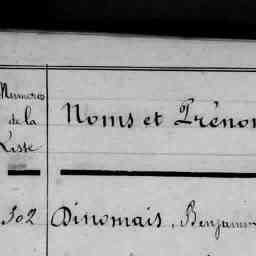 Numéros
de la
Liste
Noms et Prénom
302 Dinomais, Benjamin